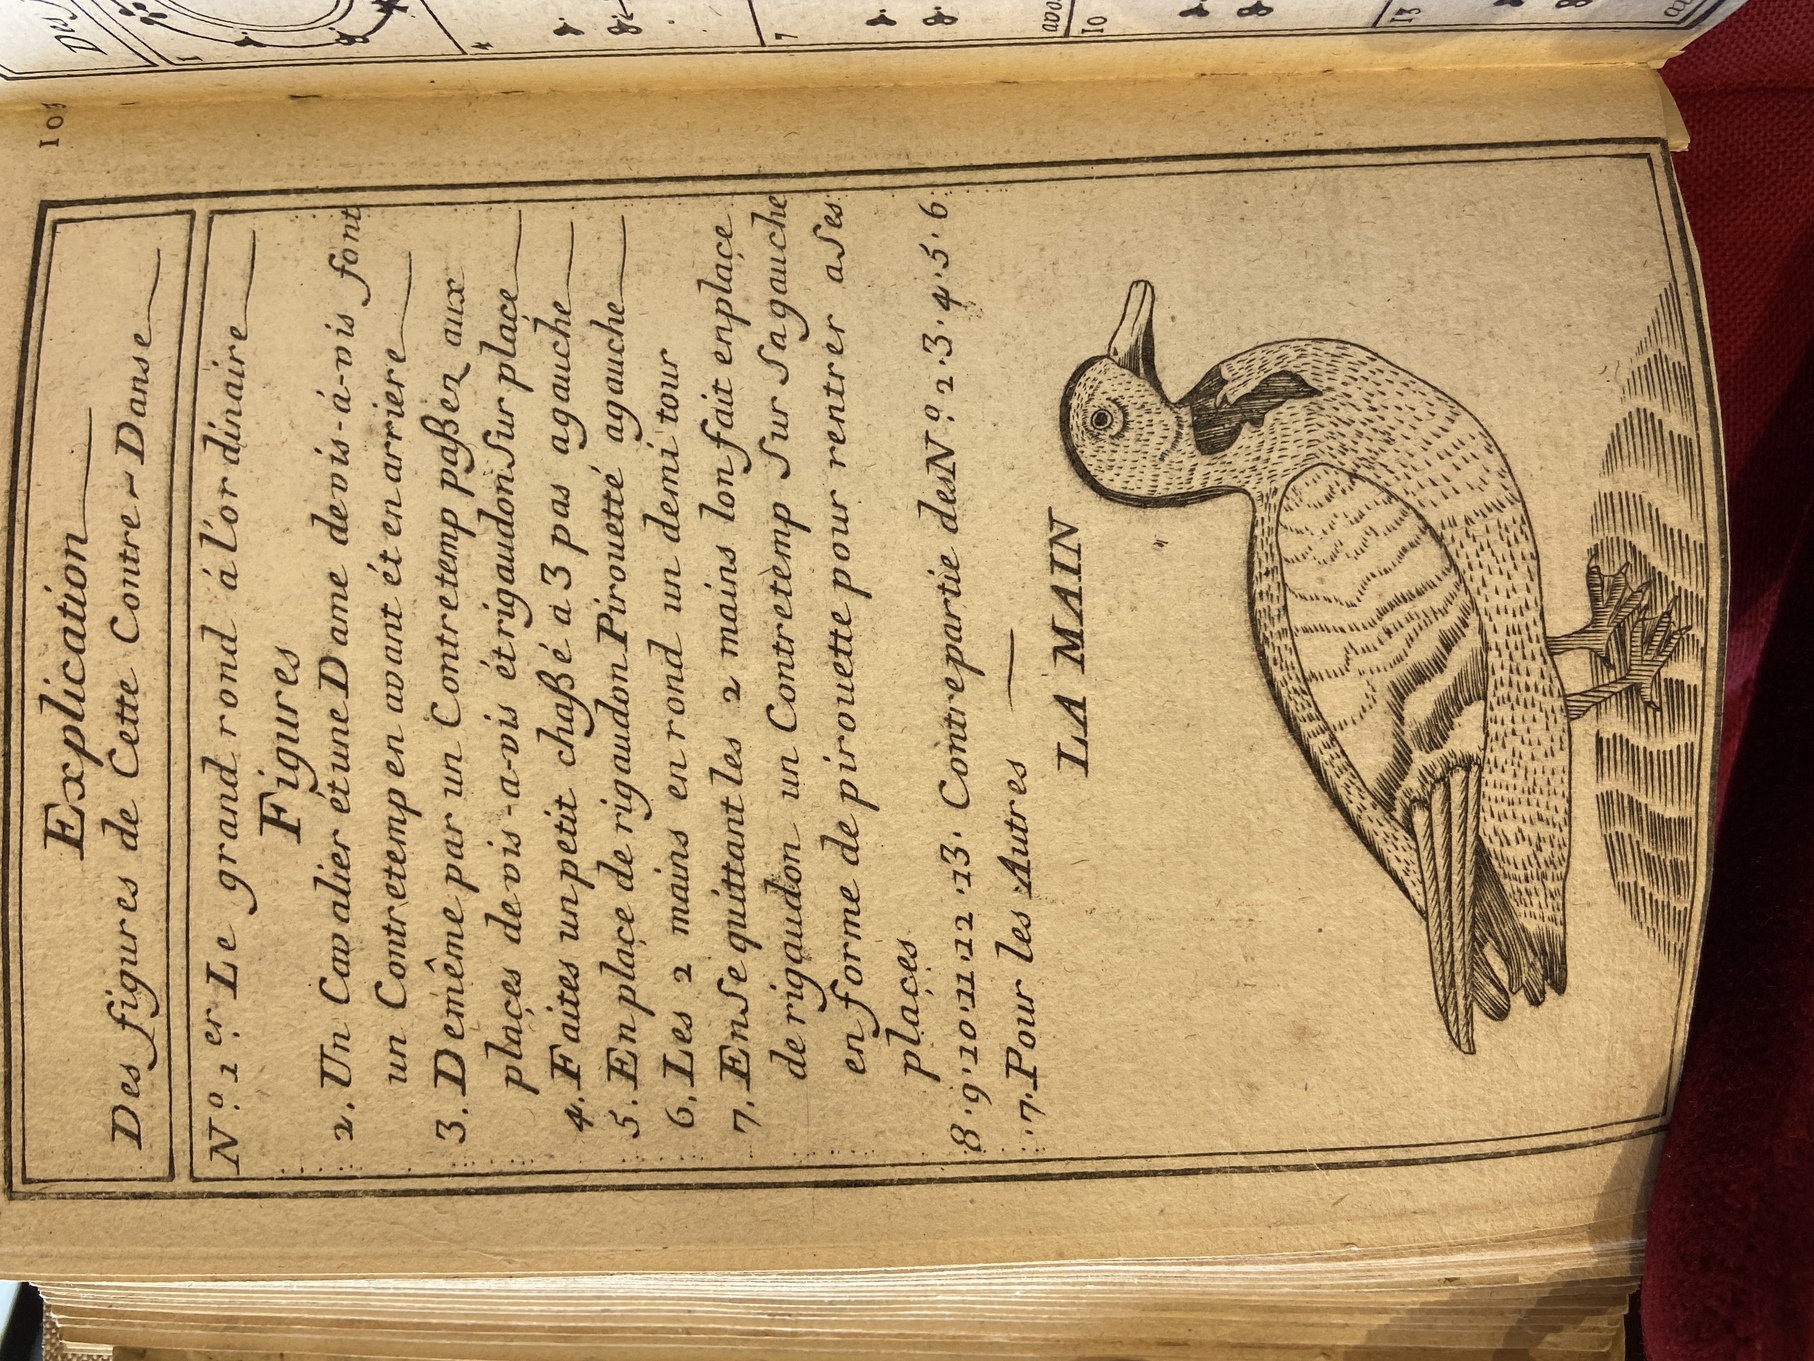 105
Explication
Des figures de Cette Contre-Danse
N.º 1.er Le grand rond á l'ordinaire
Figures
2. Un Cavalier ét une Dame devis-á-vis font
un Contretemp en avant ét en arriere
3. De même par un Contretemp paßez aux
plaçes de vis-a-vis ét rigaudon Sur plaçe
4. Faites un petit chaßé á 3 pas agauche
5. En plaçe de rigaudon Pirouetté agauche
6. Les 2 mains en rond un demi tour
7. En Se quittant les 2 mains lon fait enplaçe
de rigaudon un Contretemp Sur Sagauche
en forme de pirouette pour rentrer a Ses
plaçes
8. 9. 10. 11. 12. 13. Contrepartie des N.º 2. 3. 4. 5. 6.
.7. Pour les Autres
LA MAIN
1
4
7
10
13